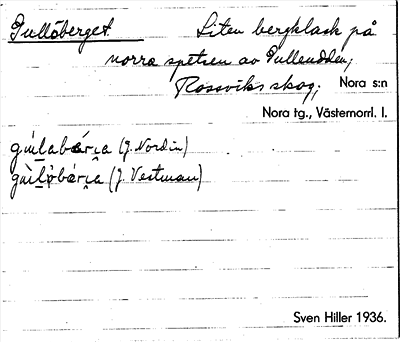 Gullöberget. Liten bergklack på
norra spetsen av Gulleudden,
Rossviks skog, Nora s:n
Nora tg., Västernorrl. l.
(J. Nordin)
(J. Vestman)
Sven Hiller 1936.